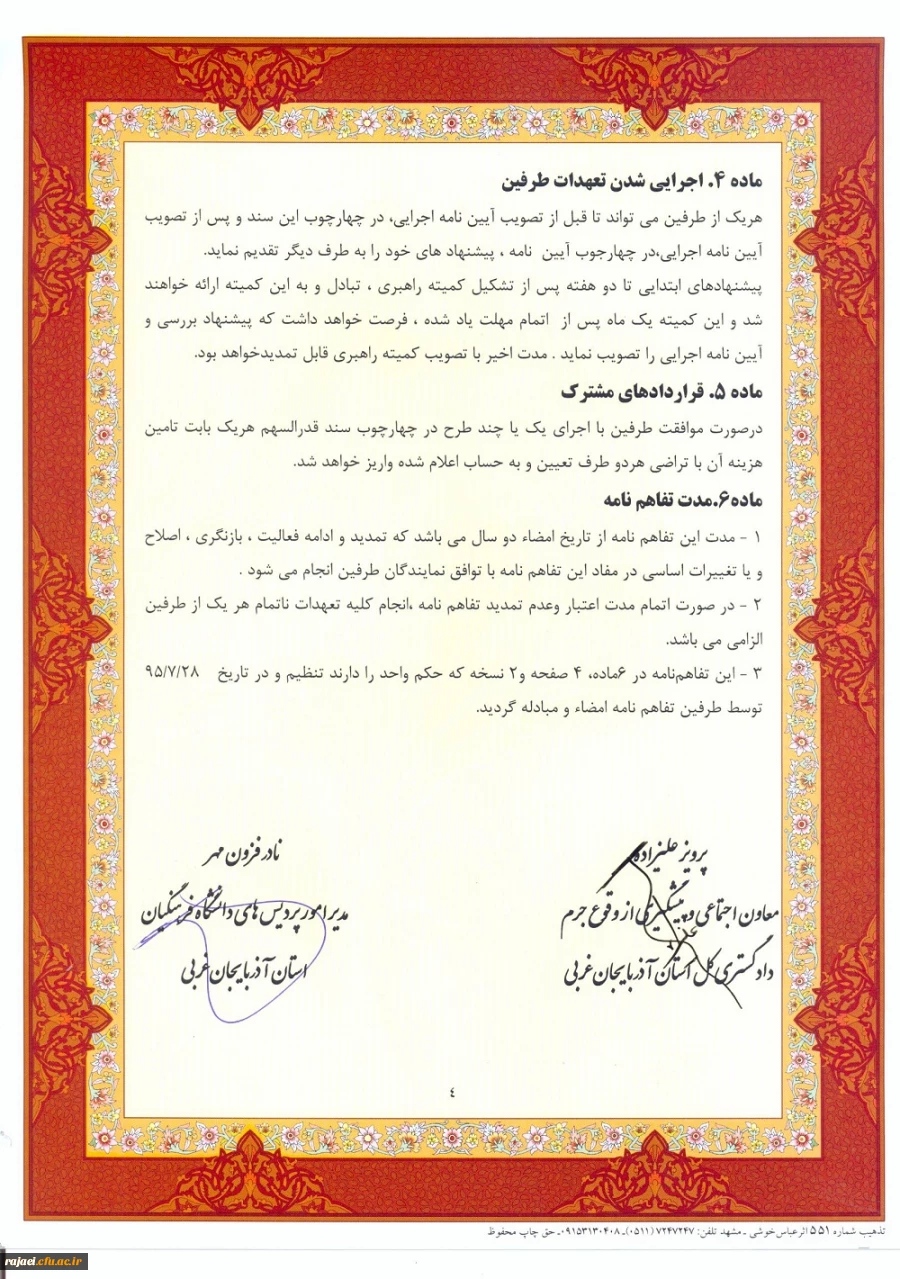 ماده ۴. اجرایی شدن تعهدات طرفین
هریک از طرفین می تواند تا قبل از تصویب آیین نامه اجرایی، در چهارچوب این سند و پس از تصویب
آیین نامه اجرایی،در چهارجوب آیین نامه ، پیشنهاد های خود را به طرف دیگر تقدیم نماید.
پیشنهادهای ابتدایی تا دو هفته پس از تشکیل کمیته راهبری ، تبادل و به این کمیته ارائه خواهند
شد و این کمیته یک ماه پس از اتمام مهلت یاد شده ، فرصت خواهد داشت که پیشنهاد بررسی و
آیین نامه اجرایی را تصویب نماید . مدت اخیر با تصویب کمیته راهبری قابل تمدیدخواهد بود.
ماده ۵. قراردادهای مشترک
درصورت موافقت طرفین با اجرای یک یا چند طرح در چهارچوب سند قدرالسهم هریک بابت تامین
هزینه آن با تراضی هردو طرف تعیین و به حساب اعلام شده واریز خواهد شد.
ماده۶.مدت تفاهم نامه
۱ - مدت این تفاهم نامه از تاریخ امضاء دو سال می باشد که تمدید و ادامه فعالیت ، بازنگری ، اصلاح
و یا تغییرات اساسی در مفاد این تفاهم نامه با توافق نمایندگان طرفین انجام می شود .
۲ - در صورت اتمام مدت اعتبار وعدم تمدید تفاهم نامه ،انجام کلیه تعهدات ناتمام هر یک از طرفین
الزامی می باشد.
۳ - این تفاهم‌نامه در ۶ماده، ۴ صفحه و۲ نسخه که حکم واحد را دارند تنظیم و در تاریخ ۹۵/۷/۲۸
توسط طرفین تفاهم نامه امضاء و مبادله گردید.
پرویز علیزاده
معاون اجتماعی و پیشگیری از وقوع جرم
دادگستری کل استان آذربایجان غربی
نادر فزون مهر
مدیر امور پردیس های دانشگاه فرهنگیان
استان آذربایجان غربی
٤
تذهیب شماره ۵۵۱ اثرعباس‌خوشی ـ مشهد تلفن: ۷۲۴۷۲۴۷ (۰۵۱۱)ـ ۰۹۱۵۳۱۳۰۴۰۸ـ حق چاپ محفوظ
rajaei.cfu.ac.ir